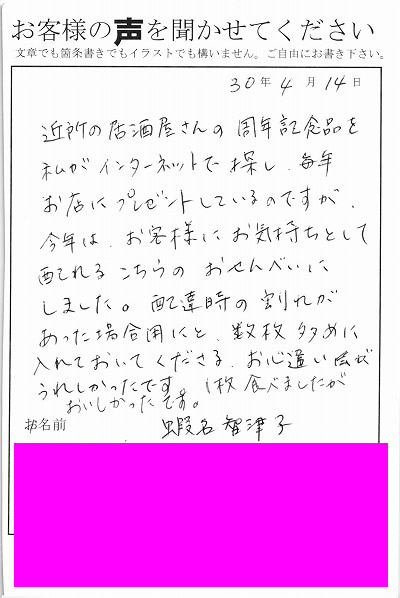 お客様の声を聞かせてください
文章でも箇条書きでもイラストでも構いません。ご自由にお書き下さい。
30年4月14日
近所の居酒屋さんの周年記念品を
私がインターネットで探し、毎年
お店にプレゼントしているのですが、
今年は、お客様にお気持ちとして
配れるこちらのおせんべいに
しました。配達時の割れが
あった場合用にと、数枚多めに
入れておいてくださる、お心遣いが
うれしかったです。1枚食べましたが
おいしかったです。
お名前 蝦名智津子